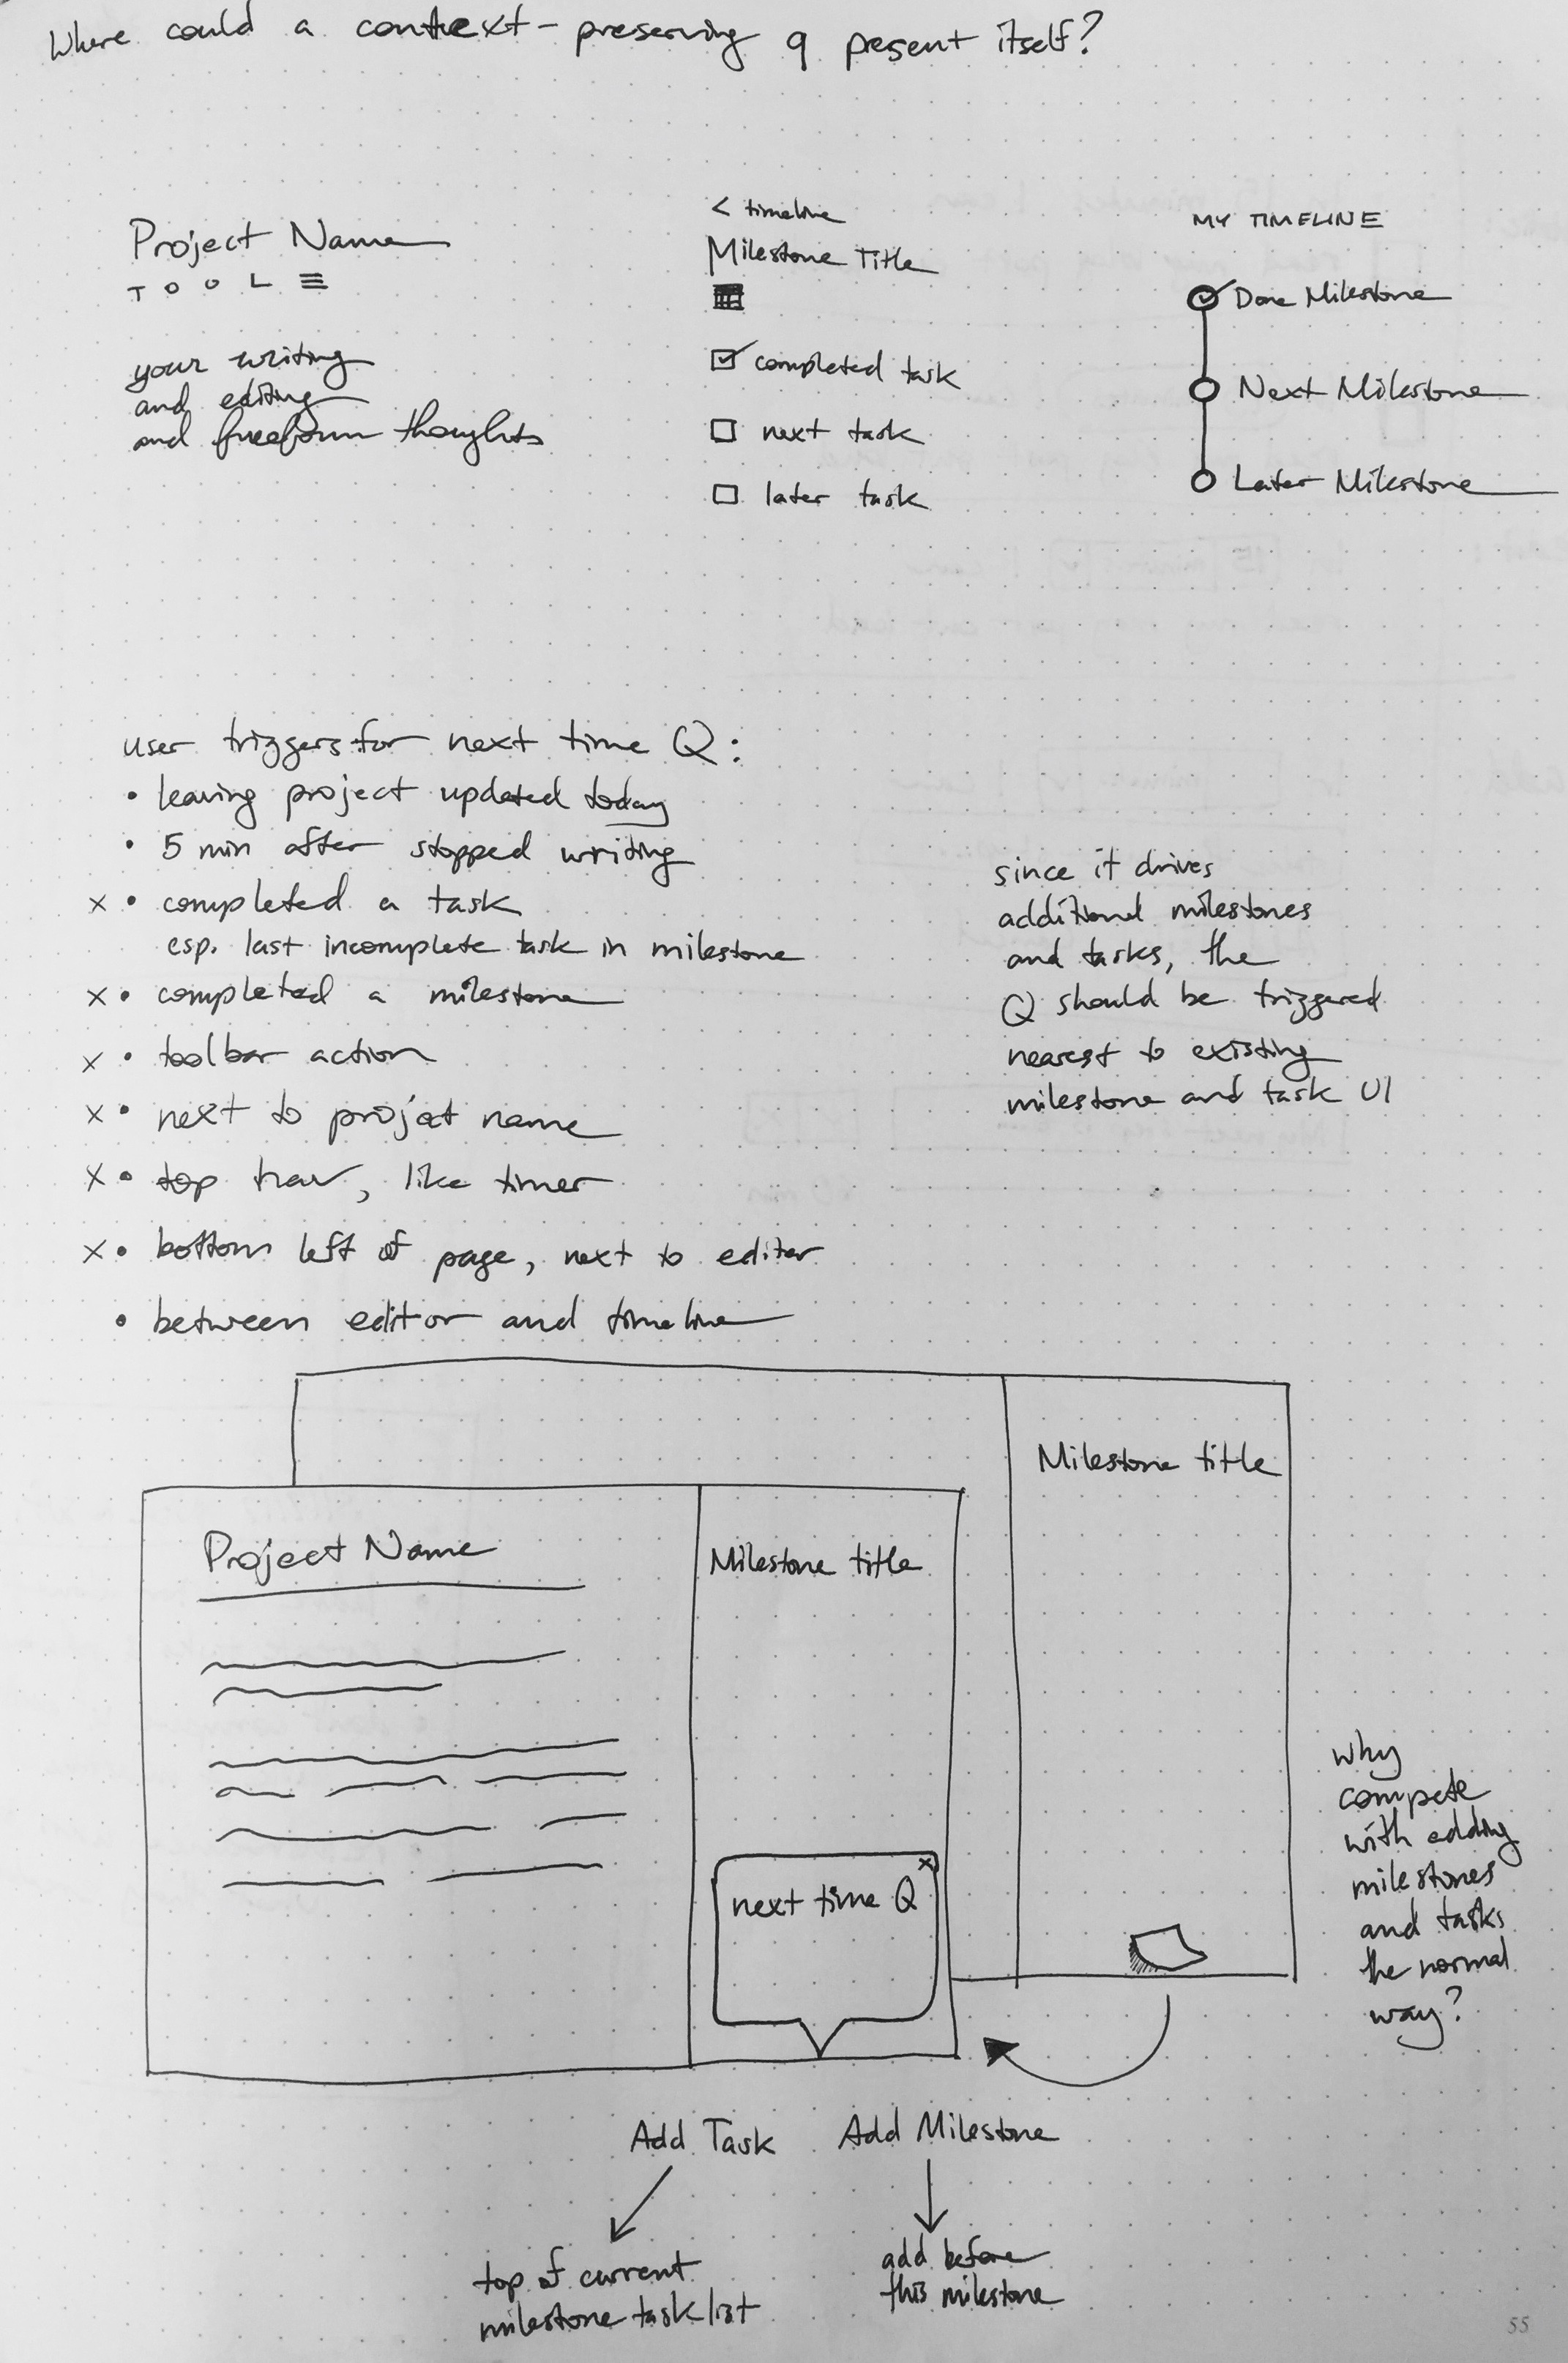 Where could a context-preserving q present itself?
Project Name
T O O L ≡
your writing
and editing
and freeform thoughts
< timeline
Milestone Title
completed task
next task
later task
MY TIMELINE
Done Milestone
Next Milestone
Later Milestone
user triggers for next time Q:
• leaving project updated today
• 5 min after stopped writing
x • completed a task
esp. last incomplete task in milestone
x • completed a milestone
x • toolbar action
x • next to project name
x • top nav, like timer
x • bottom left of page, next to editor
• between editor and timeline
since it drives
additional milestones
and tasks, the
Q should be triggered
nearest to existing
milestone and task UI
Milestone title
Project Name
Milestone title
next time Q
x
why
compete
with adding
milestones
and tasks
the normal
way?
Add Task
Add Milestone
top of current
milestone task list
add before
this milestone
55